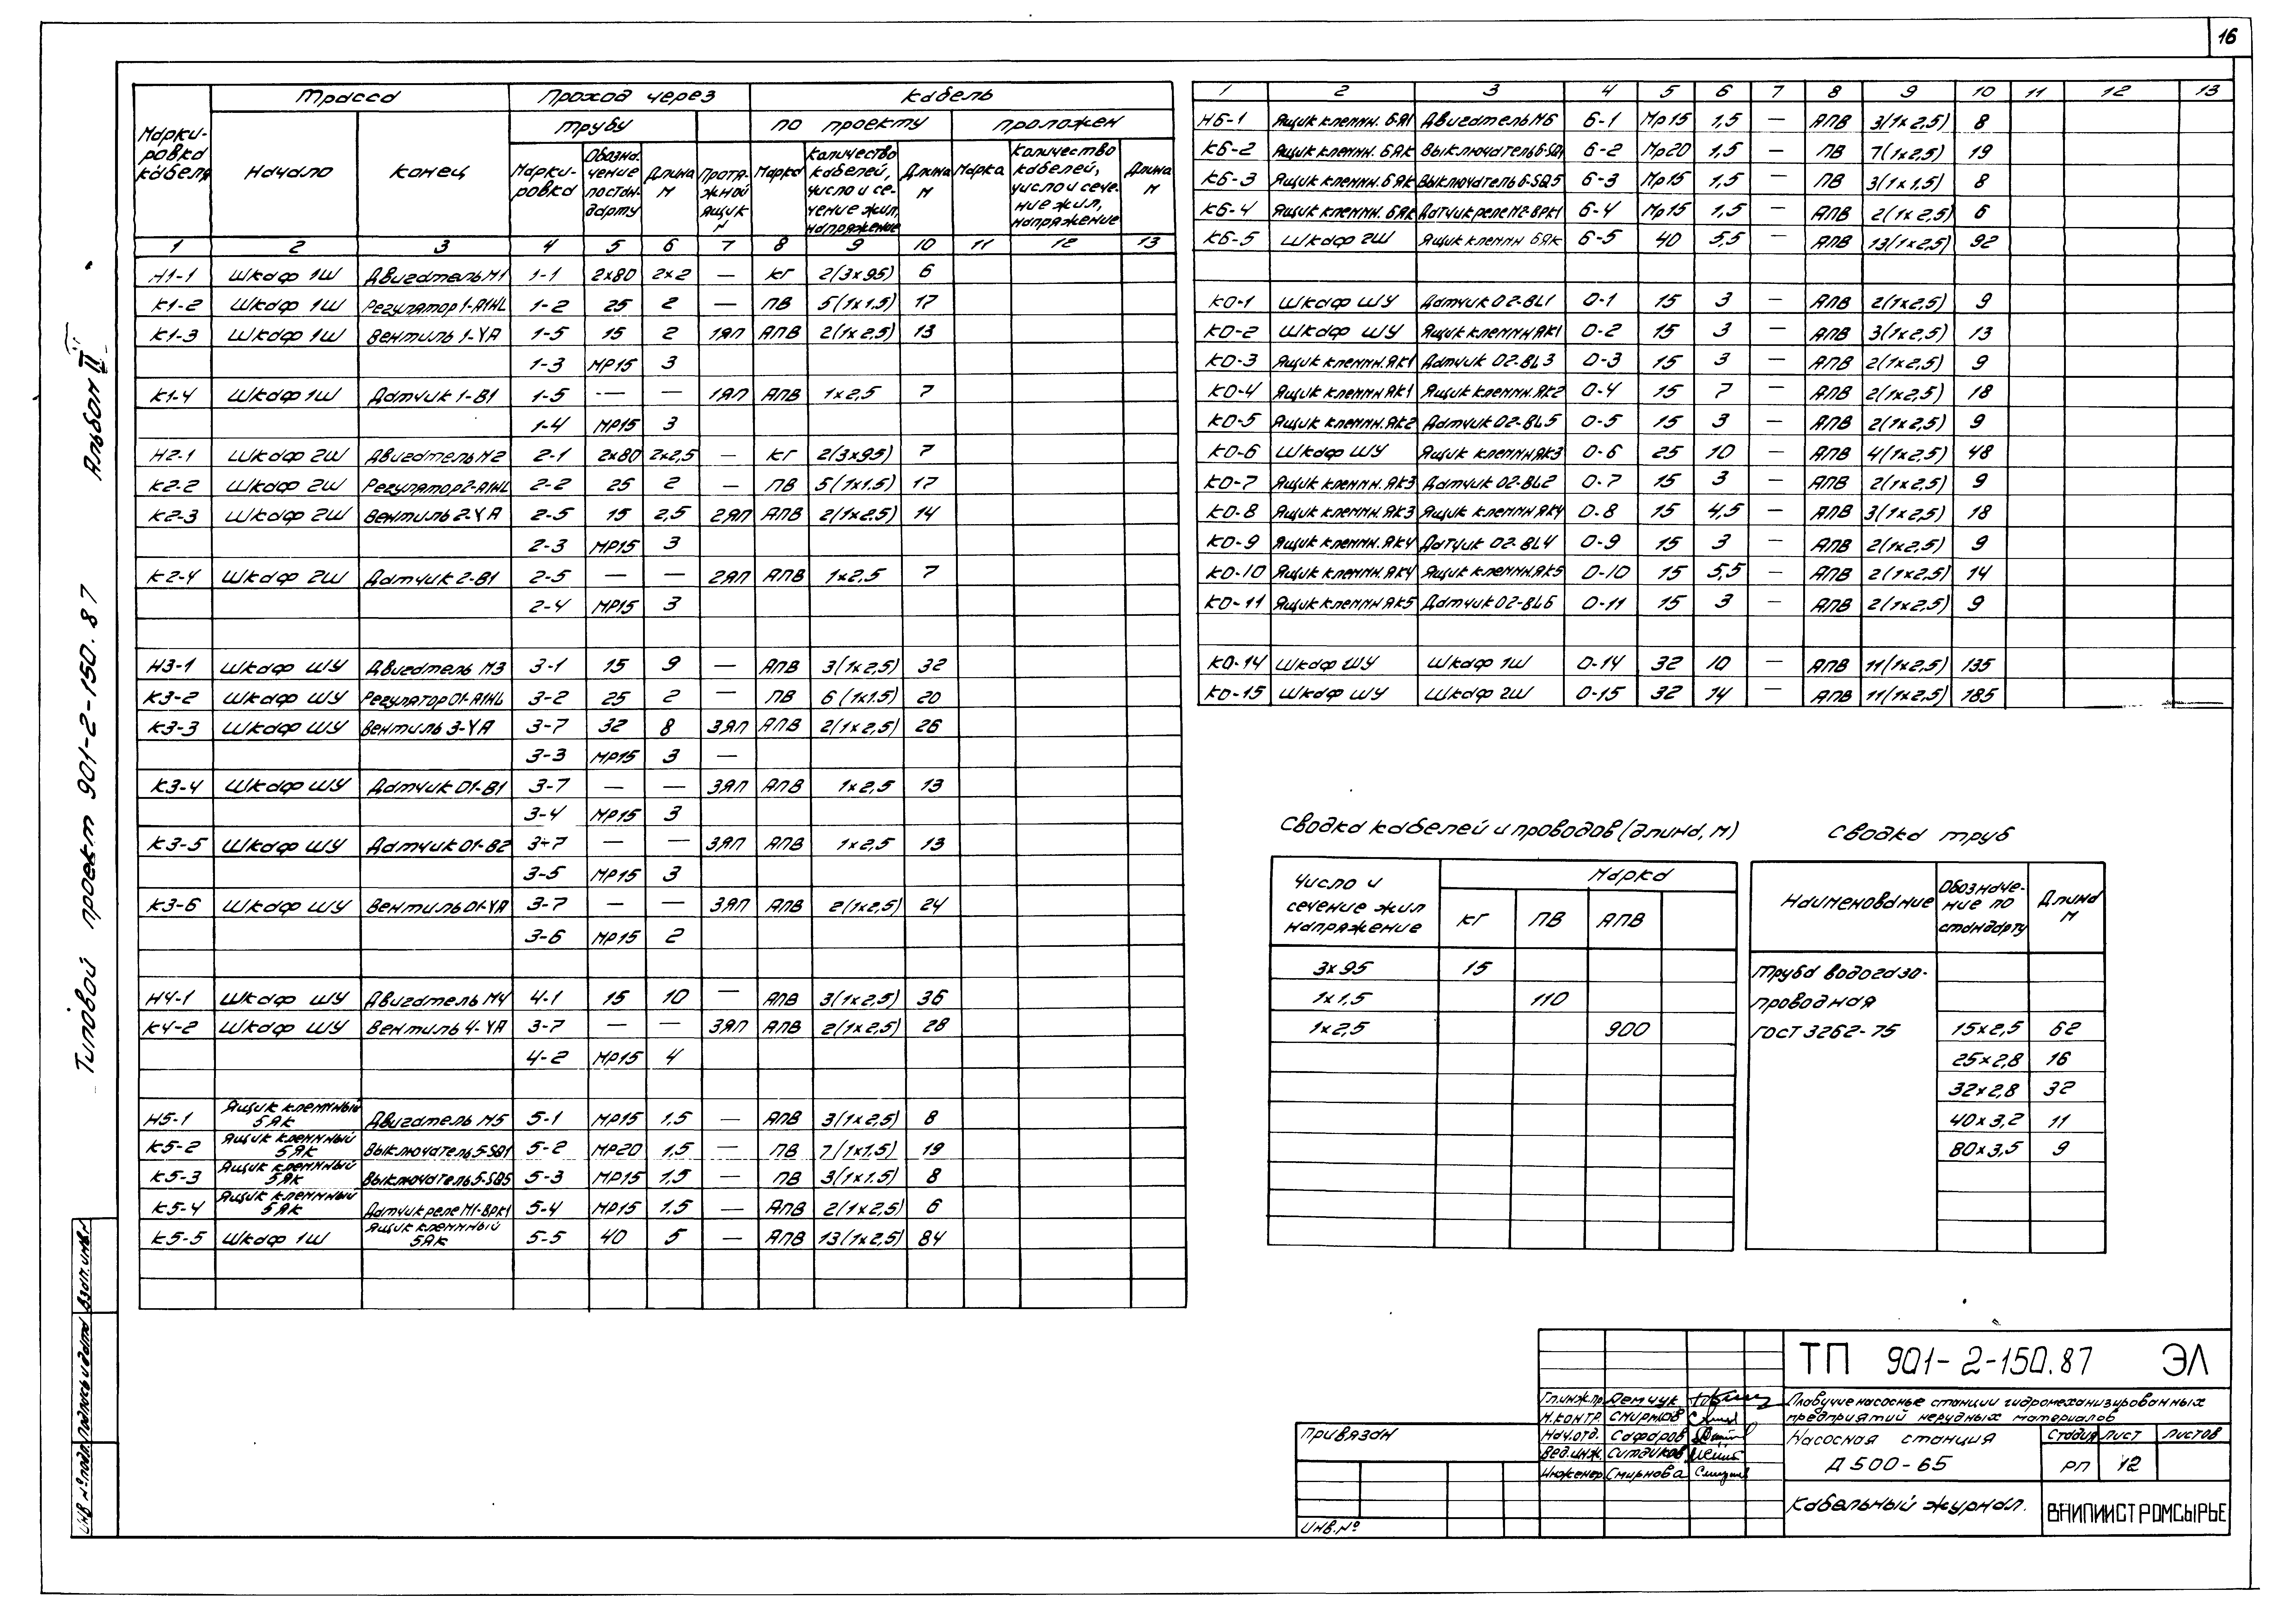 16
Типовой проект 901-2-150.87 Альбом II
Марки-ровка кабеля | Трасса | Проход через | Кабель
Начало | Конец | трубу | Протя-жной ящик N | по проекту | проложен
Марки-ровка | Обозна-чение по стан-дарту | Длина м | Марка | Количество кабелей, число и се-чение жил, напряжение | Длина м | Марка | Количество кабелей, число и сече-ние жил, напряжение | Длина м
1 2 3 4 5 6 7 8 9 10 11 12 13
Н1-1 Шкаф 1Ш Двигатель М1 1-1 2х80 2х2 — КГ 2(3х95) 6
К1-2 Шкаф 1Ш Регулятор 1-А1HL 1-2 25 2 — ПВ 5(1х1.5) 17
К1-3 Шкаф 1Ш Вентиль 1-YA 1-5 15 2 1ЯП АПВ 2(1х2,5) 13
1-3 МР15 3
К1-4 Шкаф 1Ш Датчик 1-В1 1-5 — — 1ЯП АПВ 1х2,5 7
1-4 МР15 3
Н2-1 Шкаф 2Ш Двигатель М2 2-1 2х80 2х2,5 — КГ 2(3х95) 7
К2-2 Шкаф 2Ш Регулятор 2-А1HL 2-2 25 2 — ПВ 5(1х1.5) 17
К2-3 Шкаф 2Ш Вентиль 2-YA 2-5 15 2,5 2ЯП АПВ 2(1х2,5) 14
2-3 МР15 3
К2-4 Шкаф 2Ш Датчик 2-В1 2-5 — — 2ЯП АПВ 1х2,5 7
2-4 МР15 3
Н3-1 Шкаф ШУ Двигатель М3 3-1 15 9 — АПВ 3(1х2,5) 32
К3-2 Шкаф ШУ Регулятор 01-А1HL 3-2 25 2 — ПВ 6(1х1.5) 20
К3-3 Шкаф ШУ Вентиль 3-YA 3-7 32 8 3ЯП АПВ 2(1х2,5) 26
3-3 МР15 3 —
К3-4 Шкаф ШУ Датчик 01-В1 3-7 — — 3ЯП АПВ 1х2,5 13
3-4 МР15 3
К3-5 Шкаф ШУ Датчик 01-В2 3-7 — — 3ЯП АПВ 1х2,5 13
3-5 МР15 3
К3-6 Шкаф ШУ Вентиль 01-YA 3-7 — — 3ЯП АПВ 2(1х2,5) 24
3-6 МР15 2
Н4-1 Шкаф ШУ Двигатель М4 4-1 15 10 — АПВ 3(1х2,5) 36
К4-2 Шкаф ШУ Вентиль 4-YA 3-7 — — 3ЯП АПВ 2(1х2,5) 28
4-2 МР15 4
Н5-1 Ящик клеммный 5ЯК Двигатель М5 5-1 МР15 1,5 — АПВ 3(1х2,5) 8
К5-2 Ящик клеммный 5ЯК Выключатель 5-SQ1 5-2 МР20 1,5 — ПВ 7(1х1,5) 19
К5-3 Ящик клеммный 5ЯК Выключатель 5-SQ5 5-3 МР15 1,5 — ПВ 3(1х1.5) 8
К5-4 Ящик клеммный 5ЯК Датчик реле М1-ВРК1 5-4 МР15 1.5 — АПВ 2(1х2,5) 6
К5-5 Шкаф 1Ш Ящик клеммный 5ЯК 5-5 40 5 — АПВ 13(1х2,5) 84
1 2 3 4 5 6 7 8 9 10 11 12 13
Н6-1 Ящик клемн. 6ЯК Двигатель М6 6-1 Мр15 1,5 — АПВ 3(1х2,5) 8
К6-2 Ящик клемн. 6ЯК Выключатель 6-SQ1 6-2 Мр20 1,5 — ПВ 7(1х2,5) 19
К6-3 Ящик клемн. 6ЯК Выключатель 6-SQ5 6-3 Мр15 1,5 — ПВ 3(1х1.5) 8
К6-4 Ящик клемн. 6ЯК Датчик реле М2-ВРК1 6-4 Мр15 1,5 — АПВ 2(1х2,5) 6
К6-5 Шкаф 2Ш Ящик клемн 6ЯК 6-5 40 5,5 — АПВ 13(1х2,5) 92
К0-1 Шкаф ШУ Датчик 02-BL1 0-1 15 3 — АПВ 2(1х2,5) 9
К0-2 Шкаф ШУ Ящик клемн ЯК1 0-2 15 3 — АПВ 3(1х2,5) 13
К0-3 Ящик клемн. ЯК1 Датчик 02-BL3 0-3 15 3 — АПВ 2(1х2,5) 9
К0-4 Ящик клемн ЯК1 Ящик клемн. ЯК2 0-4 15 7 — АПВ 2(1х2,5) 18
К0-5 Ящик клемн. ЯК2 Датчик 02-BL5 0-5 15 3 — АПВ 2(1х2,5) 9
К0-6 Шкаф ШУ Ящик клемн ЯК3 0-6 25 10 — АПВ 4(1х2,5) 48
К0-7 Ящик клемн. ЯК3 Датчик 02-BL2 0-7 15 3 — АПВ 2(1х2,5) 9
К0-8 Ящик клемн. ЯК3 Ящик клемн ЯК4 0-8 15 4,5 — АПВ 3(1х2,5) 18
К0-9 Ящик клемн. ЯК4 Датчик 02-BL4 0-9 15 3 — АПВ 2(1х2,5) 9
К0-10 Ящик клемн. ЯК4 Ящик клемн. ЯК5 0-10 15 5,5 — АПВ 2(1х2,5) 14
К0-11 Ящик клемн ЯК5 Датчик 02-BL6 0-11 15 3 — АПВ 2(1х2,5) 9
К0-14 Шкаф ШУ Шкаф 1Ш 0-14 32 10 — АПВ 11(1х2,5) 135
К0-15 Шкаф ШУ Шкаф 2Ш 0-15 32 14 — АПВ 11(1х2,5) 185
Сводка кабелей и проводов (длина, м)
Число и сечение жил напряжение | Марка
КГ ПВ АПВ
3х95 15
1х1,5 110
1х2,5 900
Сводка труб
Наименование | Обозначе-ние по стандарту | Длина м
Труба водогазо-
проводная
ГОСТ 3262-75 15х2,5 62
25х2,8 16
32х2,8 32
40х3,2 11
80х3,5 9
ТП 901-2-150.87 ЭЛ
Плавучие насосные станции гидромеханизированных
предприятий нерудных материалов
Гл.инж.пр. Демчук
Н.контр. Смирнов
Нач.отд. Сафаров
Вед.инж. Ситдиков
Инженер Смирнова
Насосная станция
Д 500-65
Стадия Лист Листов
РП 12
Кабельный журнал.
ВНИПИИСТРОМСЫРЬЕ
Привязан
Инв.№
Инв №подл. Подпись и дата Взам.инв.№